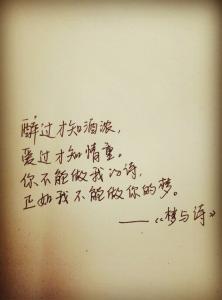 醉过才知酒浓，
爱过才知情重。
你不能做我的诗，
正如我不能做你的梦。
——《梦与诗》